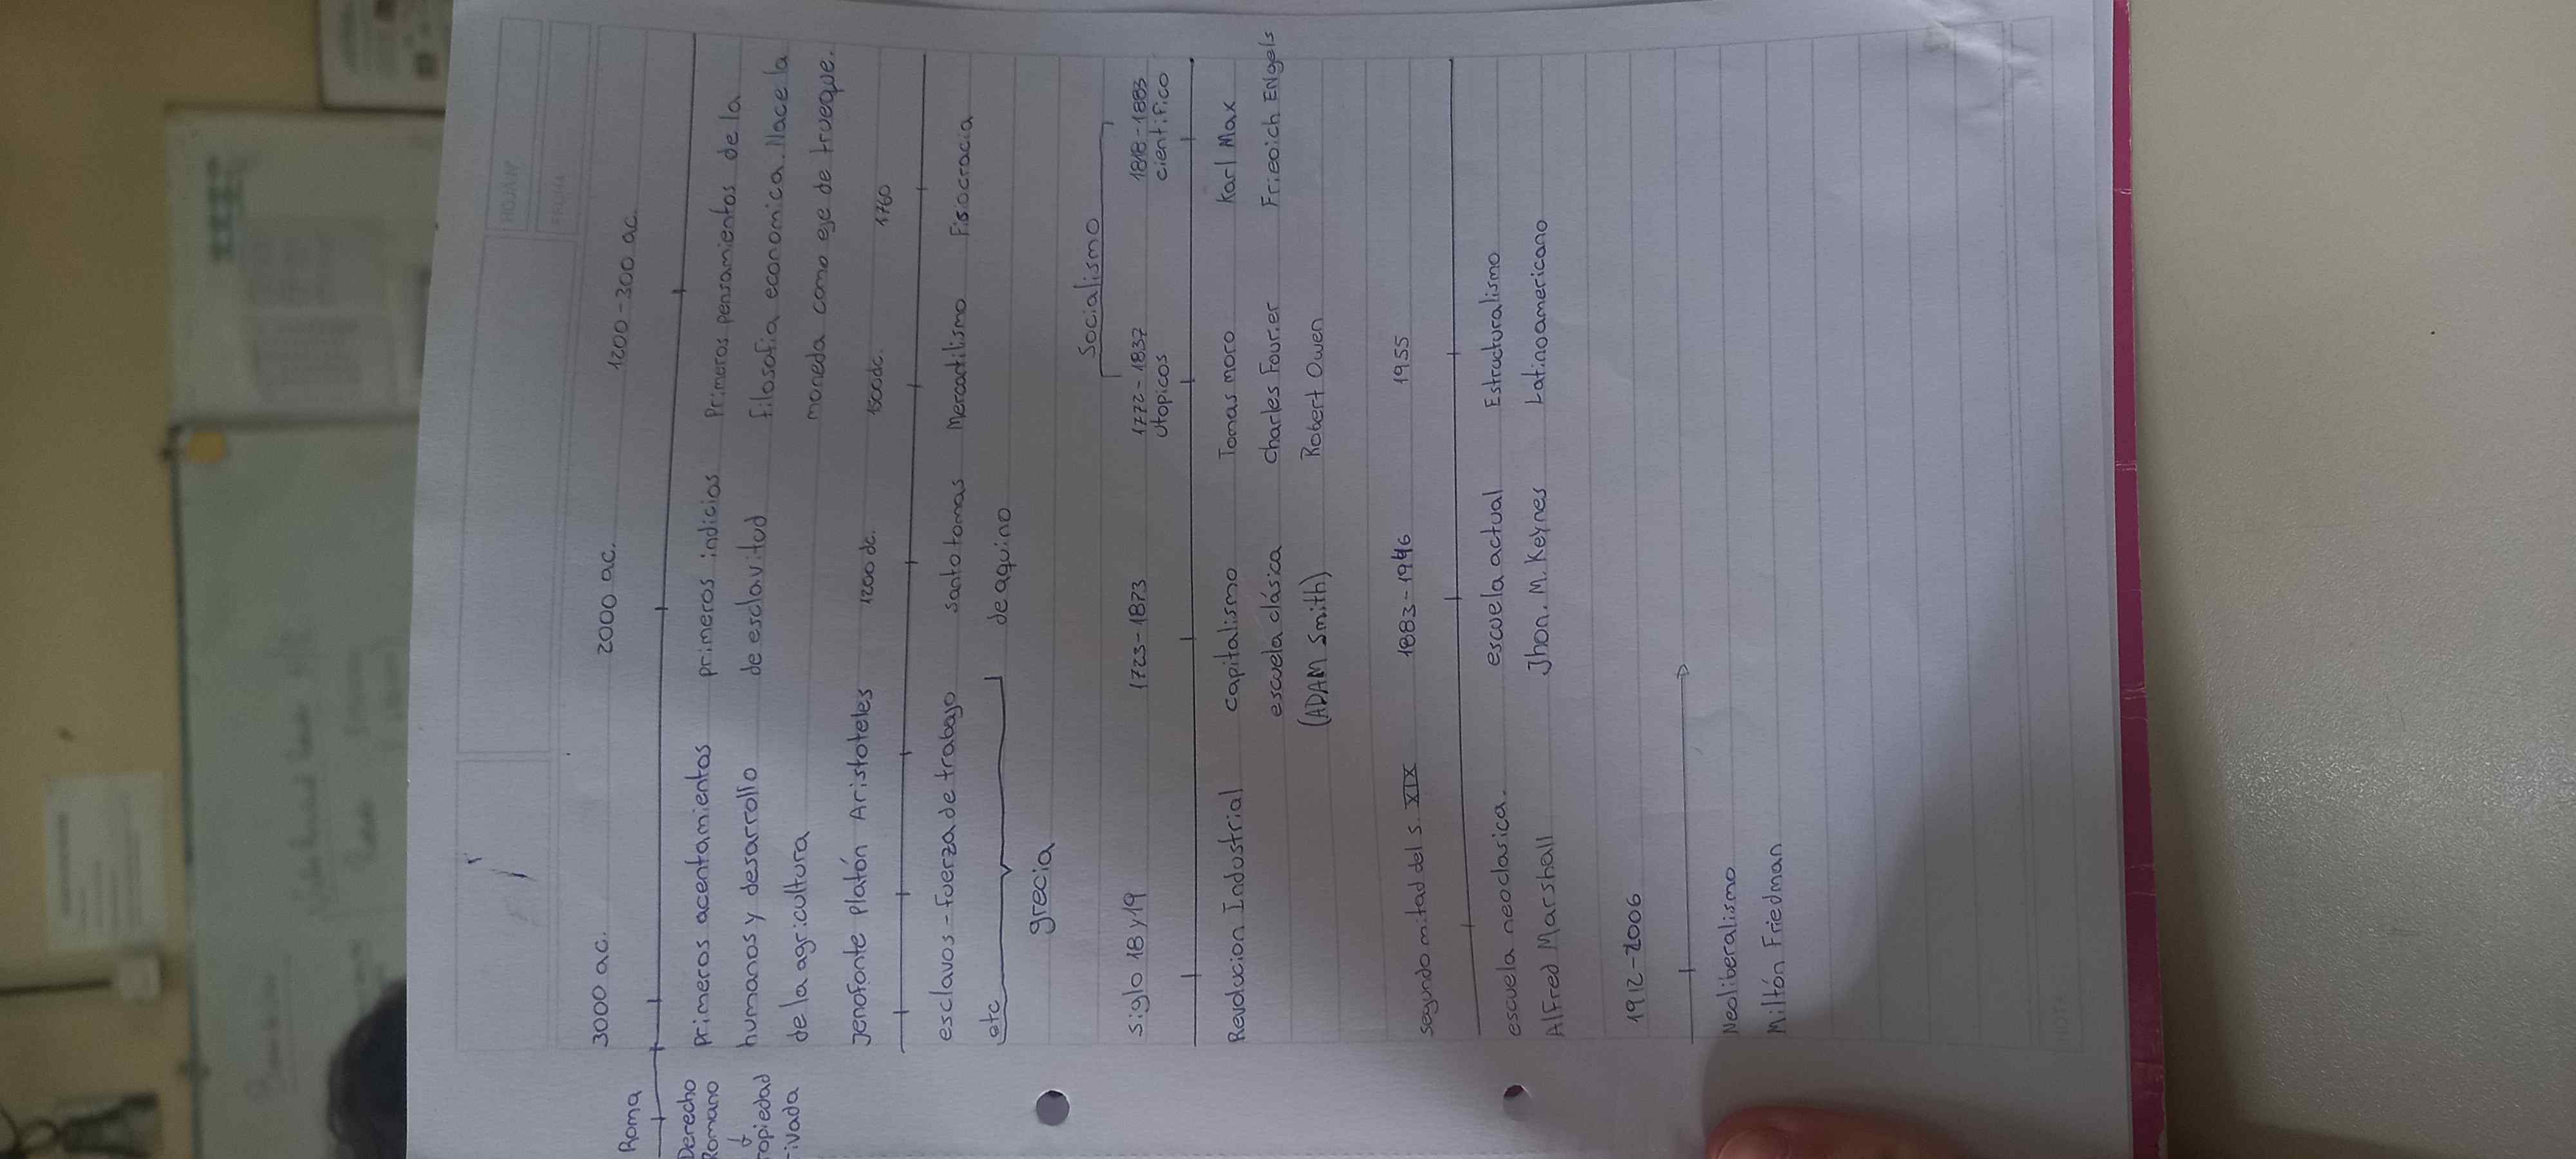 HOJA Nº
FECHA
3000 a.c. 2000 a.c. 1200-300 a.c.
Roma
Derecho
Romano
↓
ropiedad
rivada
primeros acentamientos
humanos y desarrollo
de la agricultura
primeros indicios
de esclavitud
Primeros pensamientos de la
filosofia economica. Nace la
moneda como eje de trueque.
Jenofonte Platón Aristoteles 1200 dc. 1500 dc. 1760
esclavos-fuerza de trabajo
etc
grecia
santo tomas
de aquino
Mercatilismo
Fisiocracia
Socialismo
siglo 18 y 19 1723-1873
1772-1837
Utopicos
1818-1883
cientifico
Revolucion Industrial
capitalismo
escuela clásica
(ADAM Smith)
Tomas moro
Charles Fourier
Robert Owen
Karl Max
Frieoich ENgels
segundo mitad del s. XIX 1883-1946 1955
escuela neoclasica.
AlFred Marshall
escuela actual
Jhon. M. Keynes
Estructuralismo
Latinoamericano
1912-2006
Neoliberalismo
Miltón Friedman